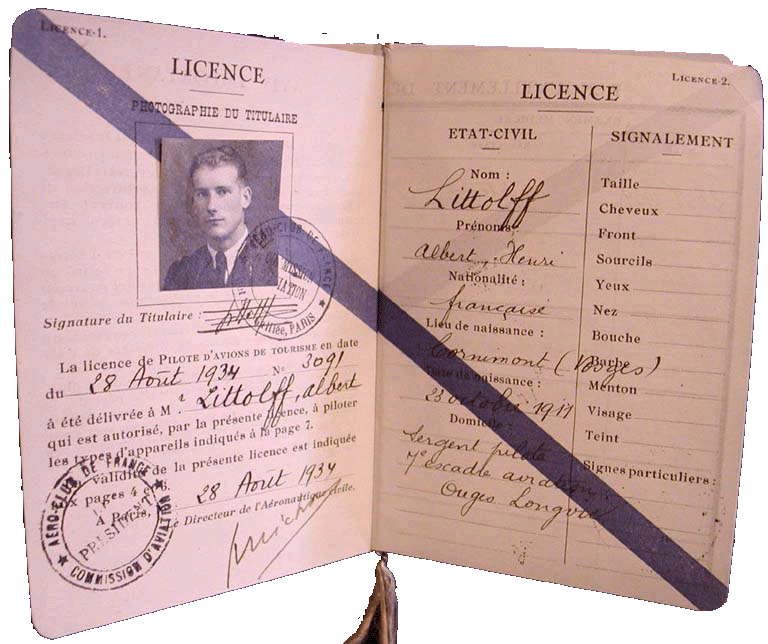 LICENCE-1.
LICENCE
PHOTOGRAPHIE DU TITULAIRE
AÉRO-CLUB DE FRANCE
Signature du Titulaire :
La licence de PILOTE D'AVIONS DE TOURISME en date
du 28 Août 1934 N° 3091
à été délivrée à M r Littolff, albert
qui est autorisé, par la présente licence, à piloter
les types d'appareils indiqués à la page 7.
validité de la présente licence est indiquée
ux pages 4
A Paris, 28 Août 1934
Le Directeur de l'Aéronautique civile.
AÉRO-CLUB DE FRANCE
COMMISSION D'AVIATION
LICENCE-2.
LICENCE
ETAT-CIVIL
Nom :
Littolff
Prénoms
albert, Henri
Nationalité :
française
Lieu de naissance :
Cornimont (Vosges)
Date de naissance :
23 octobre 1911
Domicile :
Sergent pilote
7e escadre aviation
Ouges Longvic
SIGNALEMENT
Taille
Cheveux
Front
Sourcils
Yeux
Nez
Bouche
Barbe
Menton
Visage
Teint
Signes particuliers :